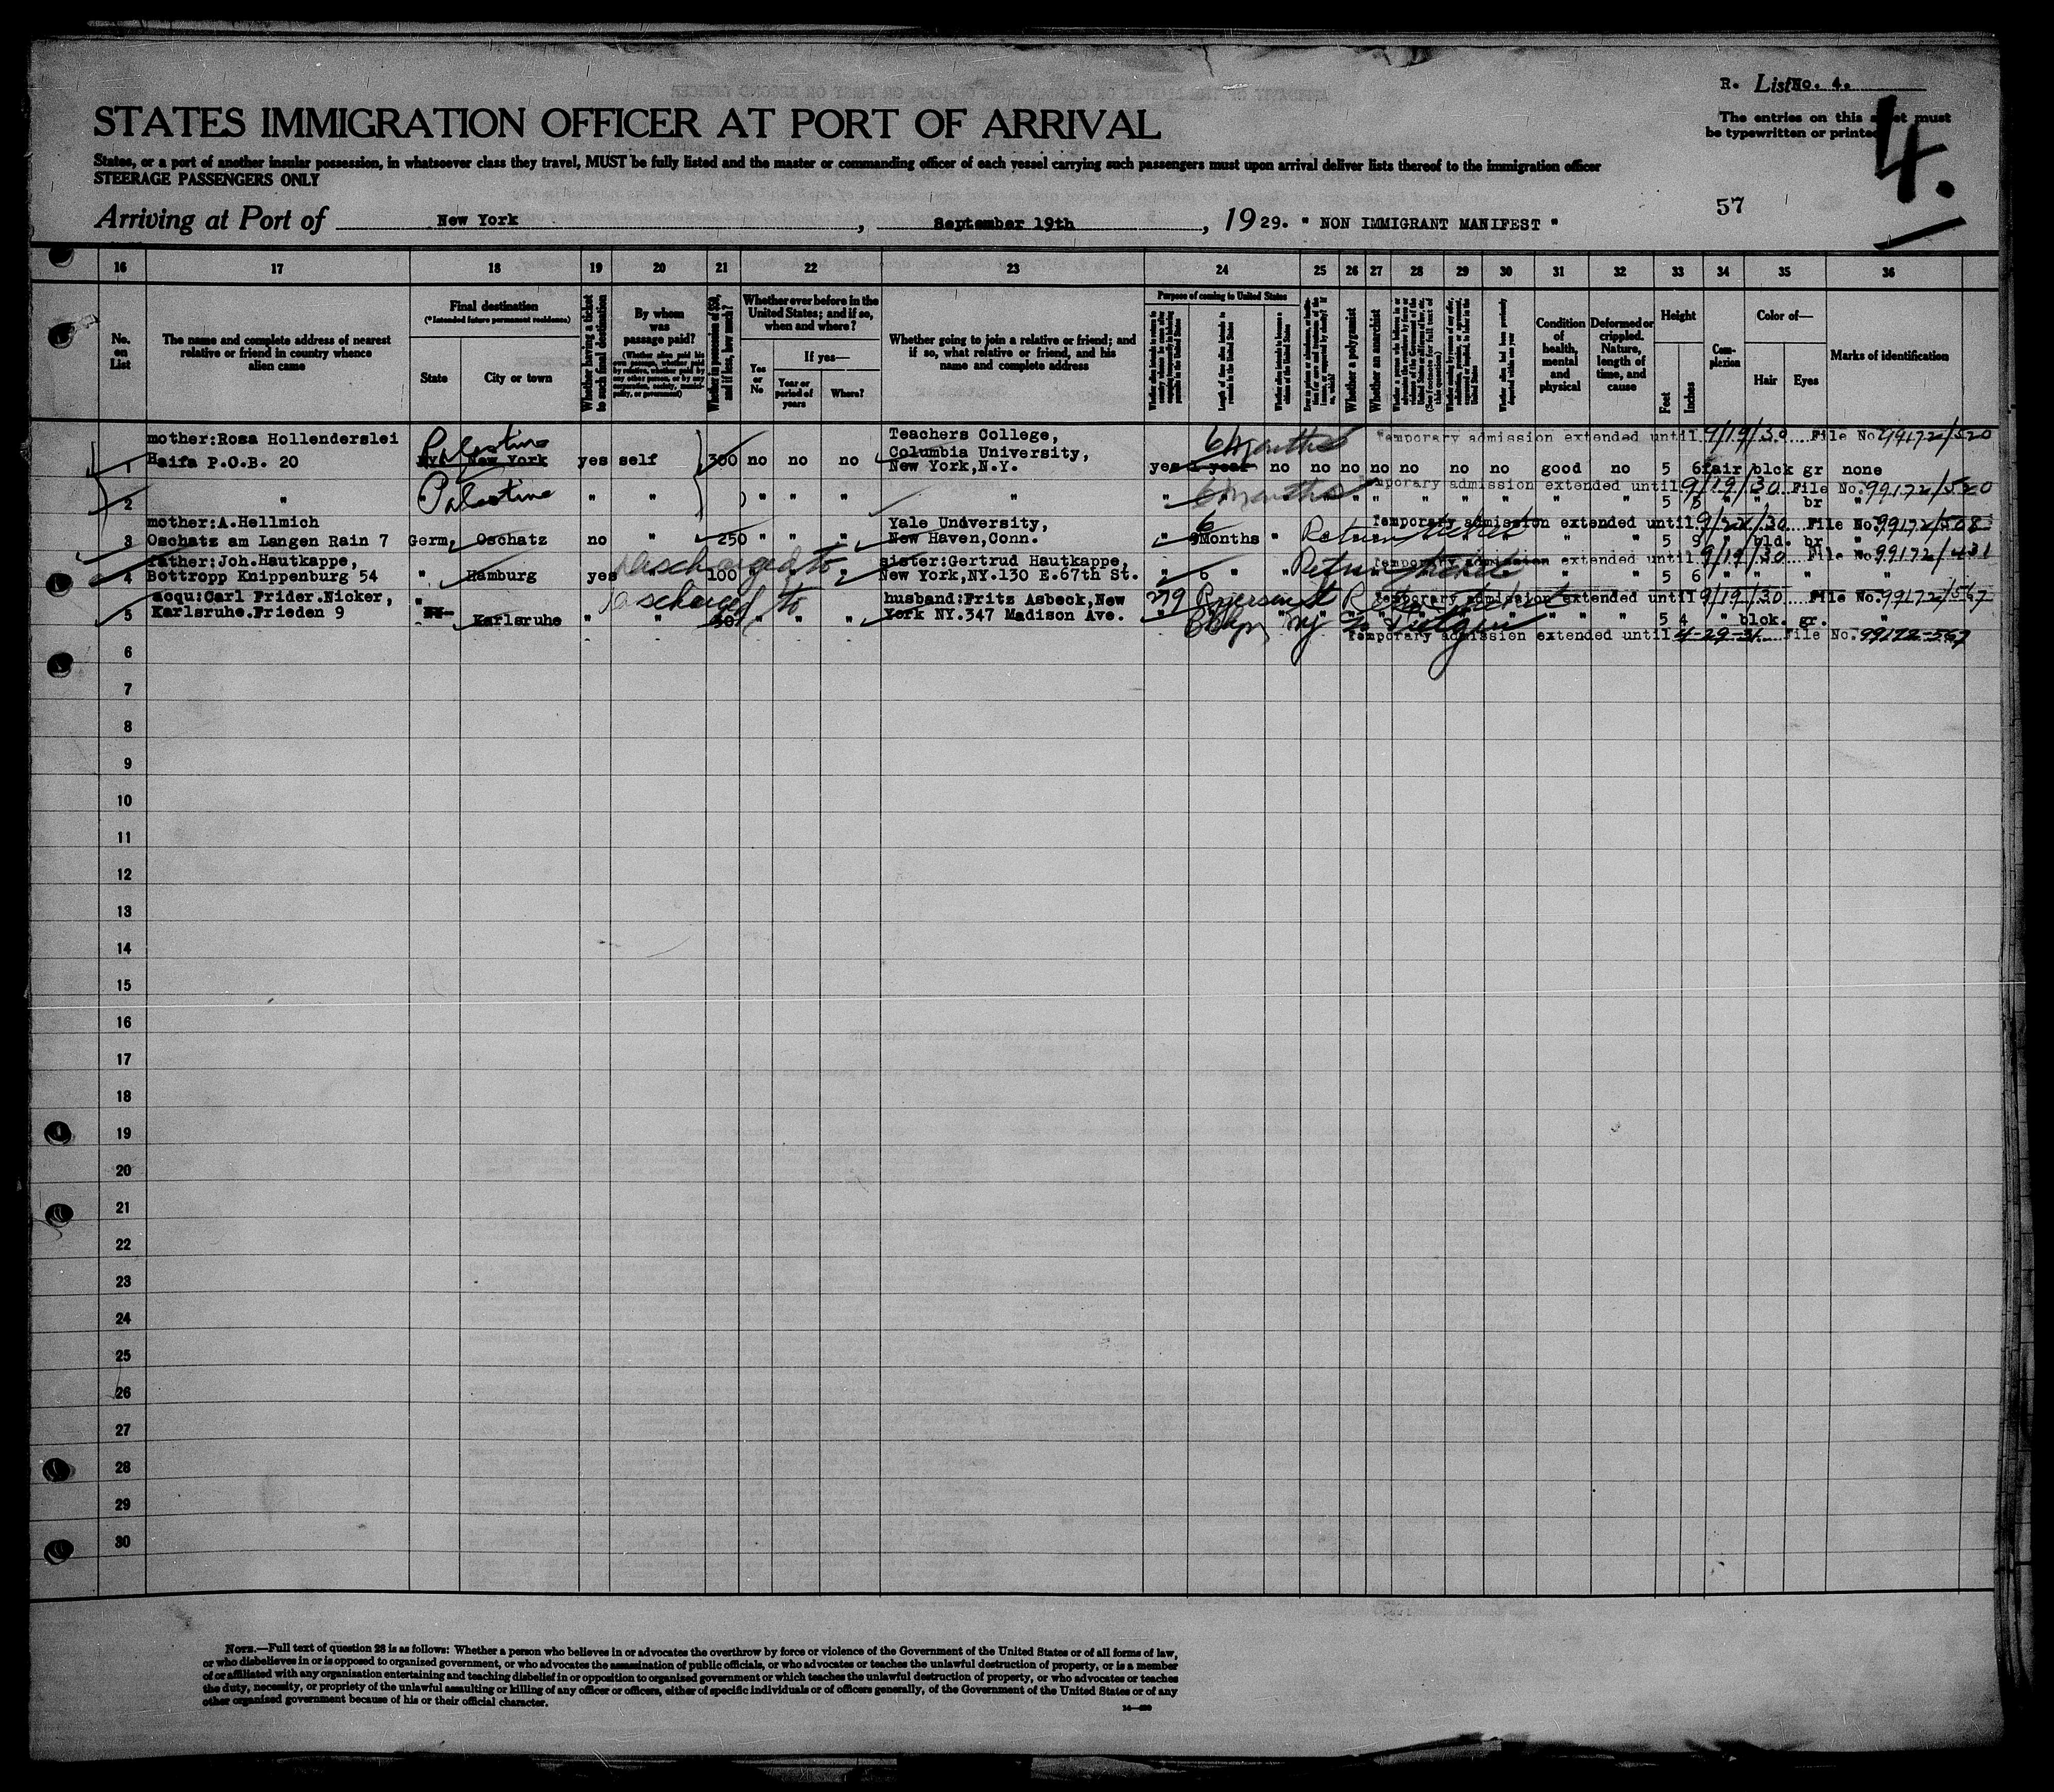 R. List No. 4.
The entries on this sheet must
be typewritten or printed
4.
STATES IMMIGRATION OFFICER AT PORT OF ARRIVAL
States, or a port of another insular possession, in whatsoever class they travel, MUST be fully listed and the master or commanding officer of each vessel carrying such passengers must upon arrival deliver lists thereof to the immigration officer
STEERAGE PASSENGERS ONLY
57
Arriving at Port of New York, September 19th, 1929. " NON IMMIGRANT MANIFEST "
16 17 18 19 20 21 22 23 24 25 26 27 28 29 30 31 32 33 34 35 36
No. on List
The name and complete address of nearest relative or friend in country whence alien came
Final destination
(*Intended future permanent residence)
State City or town
Whether having a ticket to such final destination
By whom was passage paid?
(Whether alien paid his own passage, whether paid by relative, whether paid by any other person, or by any corporation, society, municipality, or government)
Whether in possession of $50, and if less, how much?
Whether ever before in the United States; and if so, when and where?
Yes or No
If yes—
Year or period of years
Where?
Whether going to join a relative or friend; and if so, what relative or friend, and his name and complete address
Purpose of coming to United States
Length of time alien intends to remain in the United States
Whether alien intends to become a citizen of the United States
Whether a polygamist
Whether an anarchist
Condition of health, mental and physical
Deformed or crippled. Nature, length of time, and cause
Height
Feet Inches
Complexion
Color of—
Hair Eyes
Marks of identification
mother:Rosa Hollenderslei Palestine Teachers College, 6 Months Temporary admission extended until 9/19/30 File No 99172/520
1 Haifa P.O.B. 20 NY. New York yes self 300 no no no Columbia University, New York,N.Y. yes 1 year no no no no no no no good no 5 6 fair blck gr none
2 " Palestine " " " " " " " 6 Months Temporary admission extended until 9/19/30 File No. 99172/520
" " 5 5 " " br "
mother:A.Hellmich Yale University, 6 Temporary admission extended until 9/ /30 File No. 99172/508
3 Oschatz am Langen Rain 7 Germ, Oschatz no " 250 " " " New Haven,Conn. " Months " Return ticket " " 5 9 " bld. br "
father:Joh.Hautkappe, discharged to sister:Gertrud Hautkappe, Temporary admission extended until 9/19/30 File No. 99172/431
4 Bottropp Knippenburg 54 " Hamburg yes 100 New York,NY.130 E.67th St. " 6 " " Return ticket " " 5 6 " " " "
acqu:Carl Frider.Nicker, discharged to husband:Fritz Asbeck,New 279 Ryerson St Temporary admission extended until 9/19/30 File No. 99172/567
5 Karlsruhe.Frieden 9 " Karlsruhe " " 50 " " " York NY.347 Madison Ave. Bklyn NY " " 5 4 " blck. gr. "
Temporary admission extended until 4-29-31 File No. 99172-567
6
7
8
9
10
11
12
13
14
15
16
17
18
19
20
21
22
23
24
25
26
27
28
29
30
NOTE.—Full text of question 28 is as follows: Whether a person who believes in or advocates the overthrow by force or violence of the Government of the United States or of all forms of law,
or who disbelieves in or is opposed to organized government, or who advocates the assassination of public officials, or who advocates or teaches the unlawful destruction of property, or is a member
of or affiliated with any organization entertaining and teaching disbelief in or opposition to organized government or which teaches the unlawful destruction of property, or who advocates or teaches
the duty, necessity, or propriety of the unlawful assaulting or killing of any officer or officers, either of specific individuals or of officers generally, of the Government of the United States or of any
other organized government because of his or their official character.